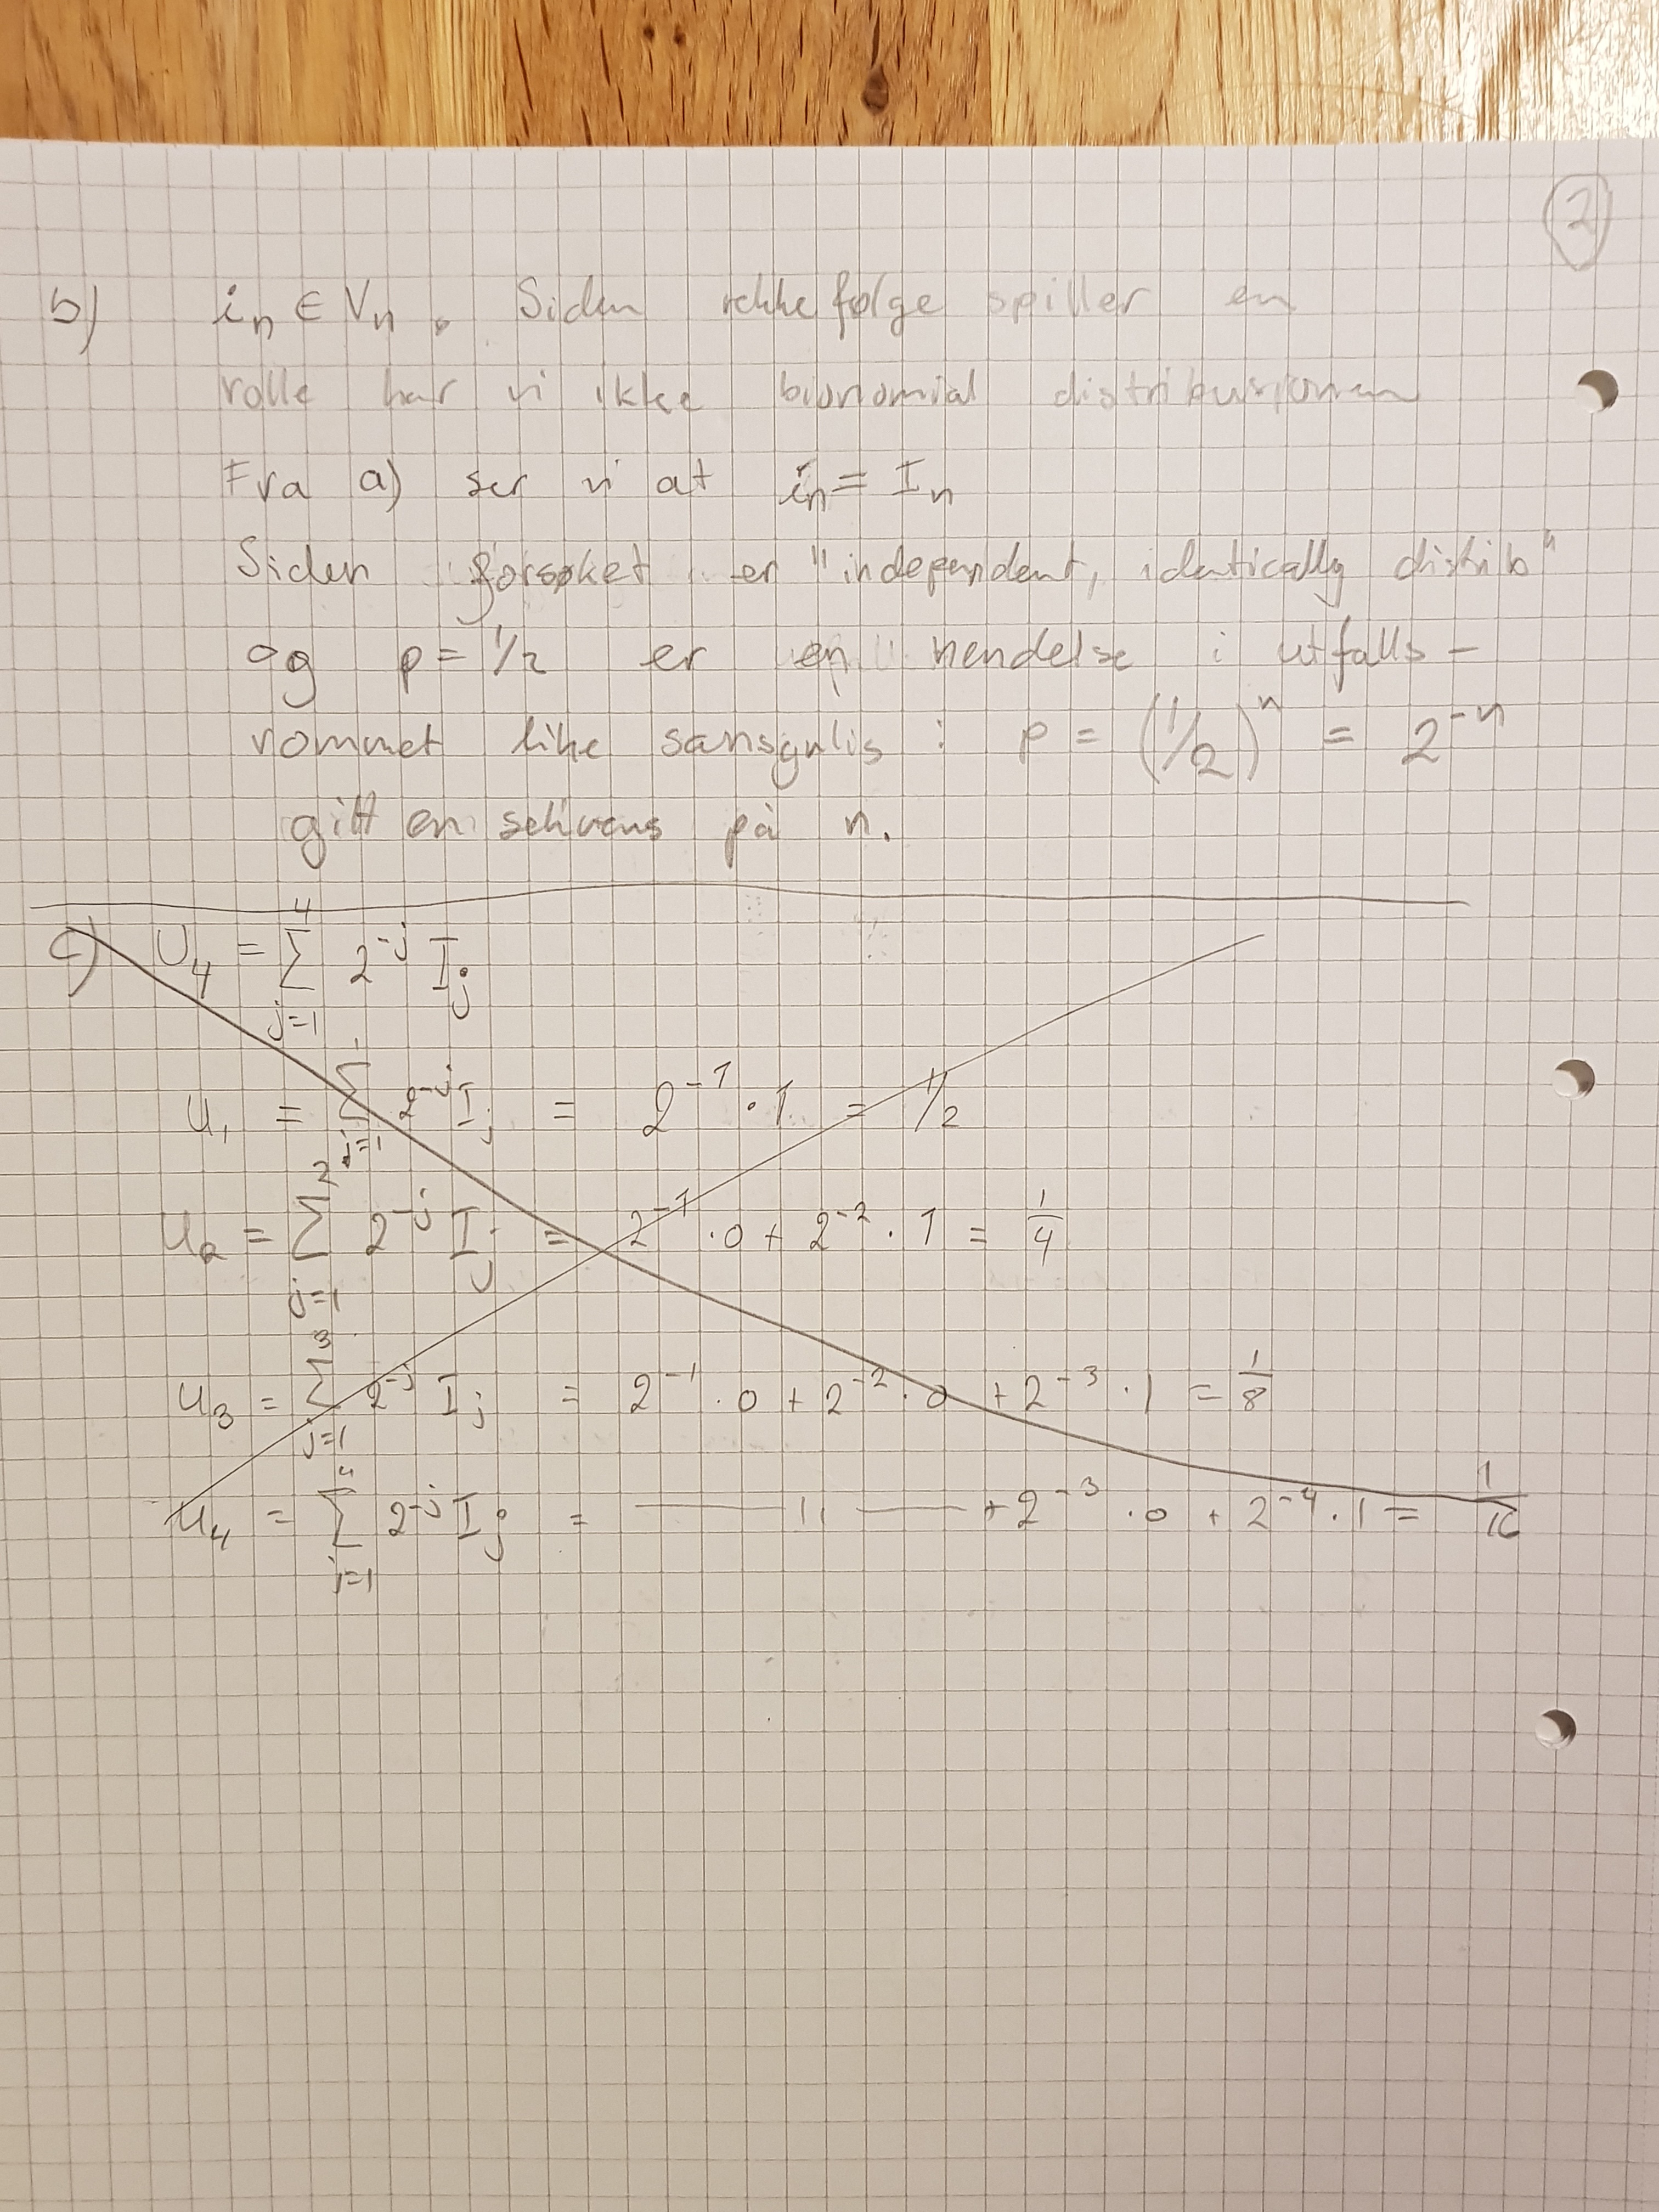 2
b) iₙ ∈ Vₙ. Siden rekkefølge spiller en
rolle har vi ikke bionomial distribusjonen
Fra a) ser vi at iₙ = Iₙ
Siden forsøket er "independent, identically distrib"
og p = 1/2 er en hendelse i utfalls-
rommet like sansynlis : p = (1/2)ⁿ = 2⁻ⁿ
gitt en sekvens på n.
c) U₄ = Σ_{j=1}^{4} 2^{-j} I_j
u₁ = Σ_{j=1}^{1} 2^{-j} I_j = 2⁻¹ · 1 = 1/2
u₂ = Σ_{j=1}^{2} 2^{-j} I_j = 2⁻¹ · 0 + 2⁻² · 1 = 1/4
u₃ = Σ_{j=1}^{3} 2^{-j} I_j = 2⁻¹ · 0 + 2⁻² · 0 + 2⁻³ · 1 = 1/8
u₄ = Σ_{j=1}^{4} 2^{-j} I_j = —— 11 —— + 2⁻³ · 0 + 2⁻⁴ · 1 = 1/16